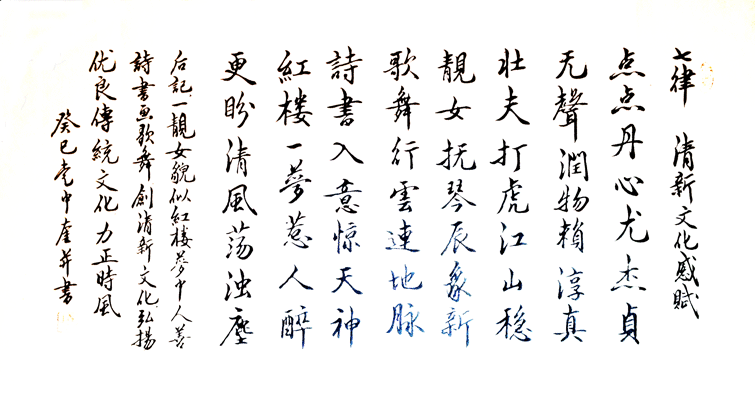 七律 清新文化感賦
点点丹心尤杰貞
无聲潤物賴淳真
壮夫打虎江山稳
靚女抚琴辰象新
歌舞行雲連地脉
詩書入意惊天神
紅楼一夢惹人醉
更盼清風荡浊塵
后記一靚女貌似紅楼夢中人善
詩書画歌舞創清新文化弘揚
优良傳統文化力正時風
癸巳 中奎并書